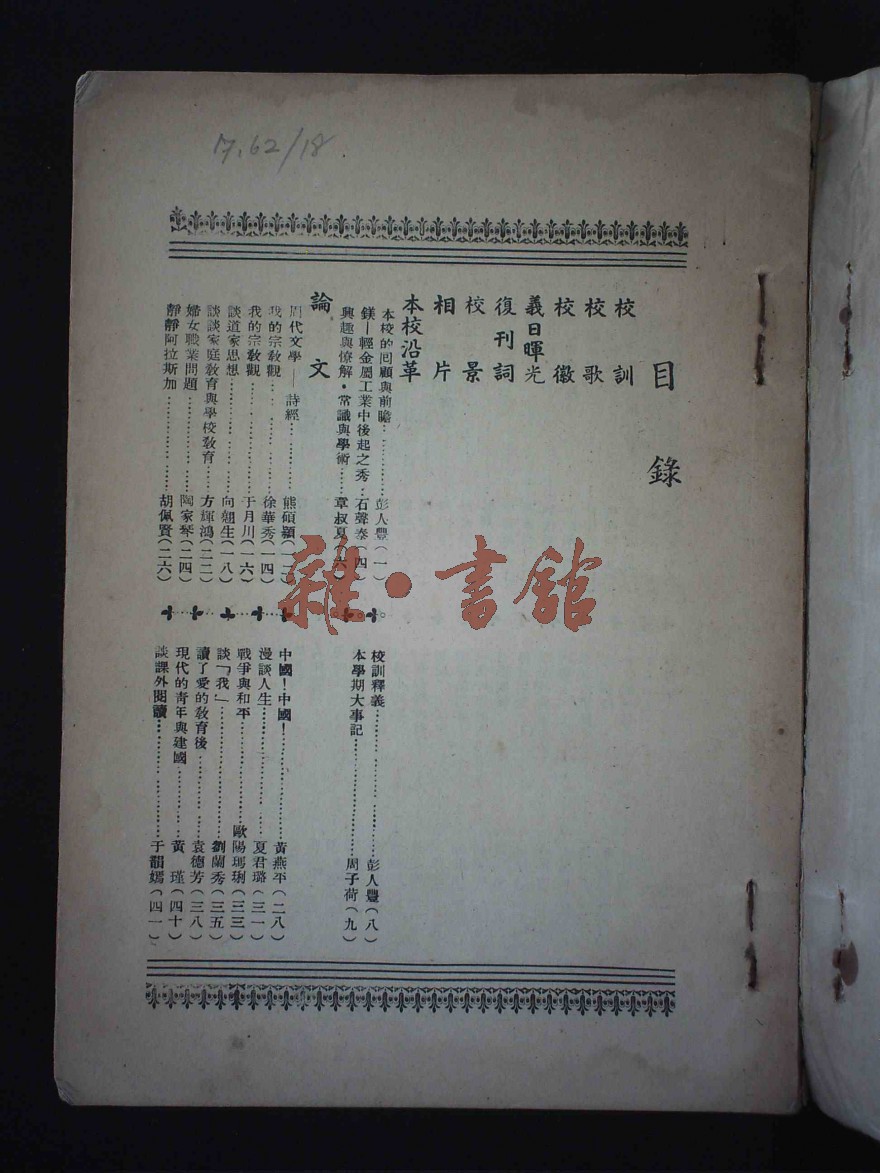 17.62/18
目錄
校訓
校歌
校徽
義日暉光
復刊詞
校景
相片
本校沿革
本校的回顧與前瞻…………彭人豐(一)
鎂—輕金屬工業中後起之秀…石聲泰(四)
興趣與憭解·常識與學術……章叔夏(六)
校訓釋義…………彭人豐(八)
本學期大事記…………周子荷(九)
論文
周代文學——詩經…………熊碩穎(一二)
我的宗教觀…………徐華秀(一四)
我的宗教觀…………于月川(一六)
談道家思想…………向朝生(一八)
談談家庭教育與學校教育……方輝鴻(二二)
婦女職業問題…………陶家琴(二四)
靜靜阿拉斯加…………胡佩賢(二六)
中國!中國!…………黃燕平(二八)
漫談人生…………夏君璐(三一)
戰爭與和平…………歐陽瑪琍(三三)
談「我」…………劉蘭秀(三五)
讀了愛的教育後…………袁德芳(三八)
現代的青年與建國…………黃瑾(四十)
談課外閱讀…………于韻嫣(四一)
雜·書館